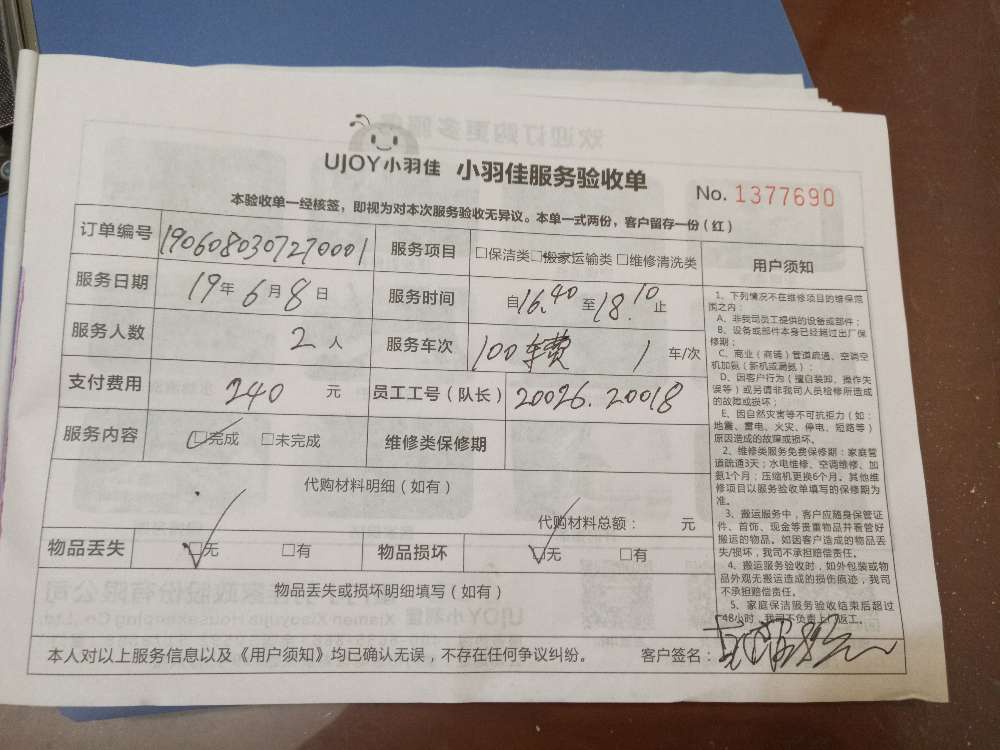 UJOY小羽佳 小羽佳服务验收单
No. 1377690
本验收单一经核签，即视为对本次服务验收无异议。本单一式两份，客户留存一份（红）
订单编号 190608030727000​1 服务项目 □保洁类□搬家运输类 □维修清洗类
服务日期 19年 6月 8日 服务时间 自16.40至18.10止
服务人数 2人 服务车次 100车费 1 车/次
支付费用 240 元 员工工号（队长） 20026.20018
服务内容 □完成 □未完成 维修类保修期
代购材料明细（如有）
代购材料总额： 元
物品丢失 □无 □有 物品损坏 □无 □有
物品丢失或损坏明细填写（如有）
本人对以上服务信息以及《用户须知》均已确认无误，不存在任何争议纠纷。 客户签名：
用户须知
1、下列情况不在维修项目的维保范
围之内：
A、非我司员工提供的设备或部件；
B、设备或部件本身已经超过出厂保
修期；
C、商业（商铺）管道疏通、空调空
机加氨（新机或漏氨）；
D、因客户行为（擅自装卸、操作失
误等）或另请非我司人员检修所造成
的故障或损坏；
E、因自然灾害等不可抗拒力（如：
地震、雷电、火灾、停电、短路等）
原因造成的故障或损坏。
2、维修类服务免费保修期：家庭管
道疏通3天；水电维修、空调维修、加
氨1个月；压缩机更换6个月。其他维
修项目以服务验收单填写的保修期为
准。
3、搬运服务中，客户应随身保管证
件、首饰、现金等贵重物品并看管好
搬运的物品。如因客户造成的物品丢
失/损坏，我司不承担赔偿责任。
4、搬运服务验收时，如外包装或物
品外观无搬运造成的损伤痕迹，我司
不承担赔偿责任。
5、家庭保洁服务验收结束后超过
48小时，我司不负责上门返工。